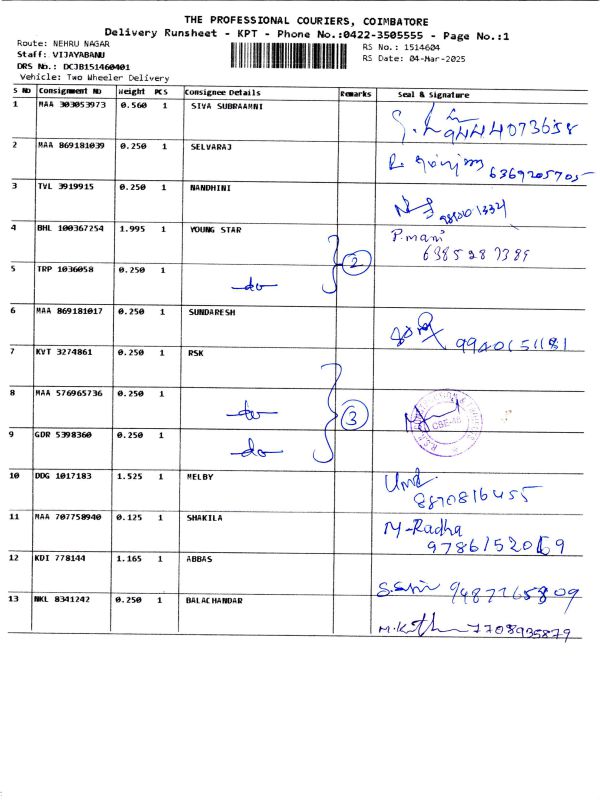 THE PROFESSIONAL COURIERS, COIMBATORE
Delivery Runsheet - KPT - Phone No.:0422-3505555 - Page No.:1
Route: NEHRU NAGAR
Staff: VIJAYABANU
DRS No.: DCJB151460401
Vehicle: Two Wheeler Delivery
RS No.: 1514604
RS Date: 04-Mar-2025
S No Consignment No Weight PCS Consignee Details Remarks Seal & Signature
1 MAA 303053973 0.560 1 SIVA SUBRAAMNI 9444073658
2 MAA 869181039 0.250 1 SELVARAJ 6369205705
3 TVL 3919915 0.250 1 NANDHINI
4 BHL 100367254 1.995 1 YOUNG STAR P.mani
6385287389
5 TRP 1036058 0.250 1 do 2
6 MAA 869181017 0.250 1 SUNDARESH 9940151181
7 KVT 3274861 0.250 1 RSK
8 MAA 576965736 0.250 1 do 3
9 GDR 5398360 0.250 1 do
CBE-45
10 DDG 1017183 1.525 1 MELBY
8870816455
11 MAA 707758940 0.125 1 SHAKILA M-Radha
9786152069
12 KDI 778144 1.165 1 ABBAS
9487765809
13 NKL 8341242 0.250 1 BALACHANDAR
7708935879